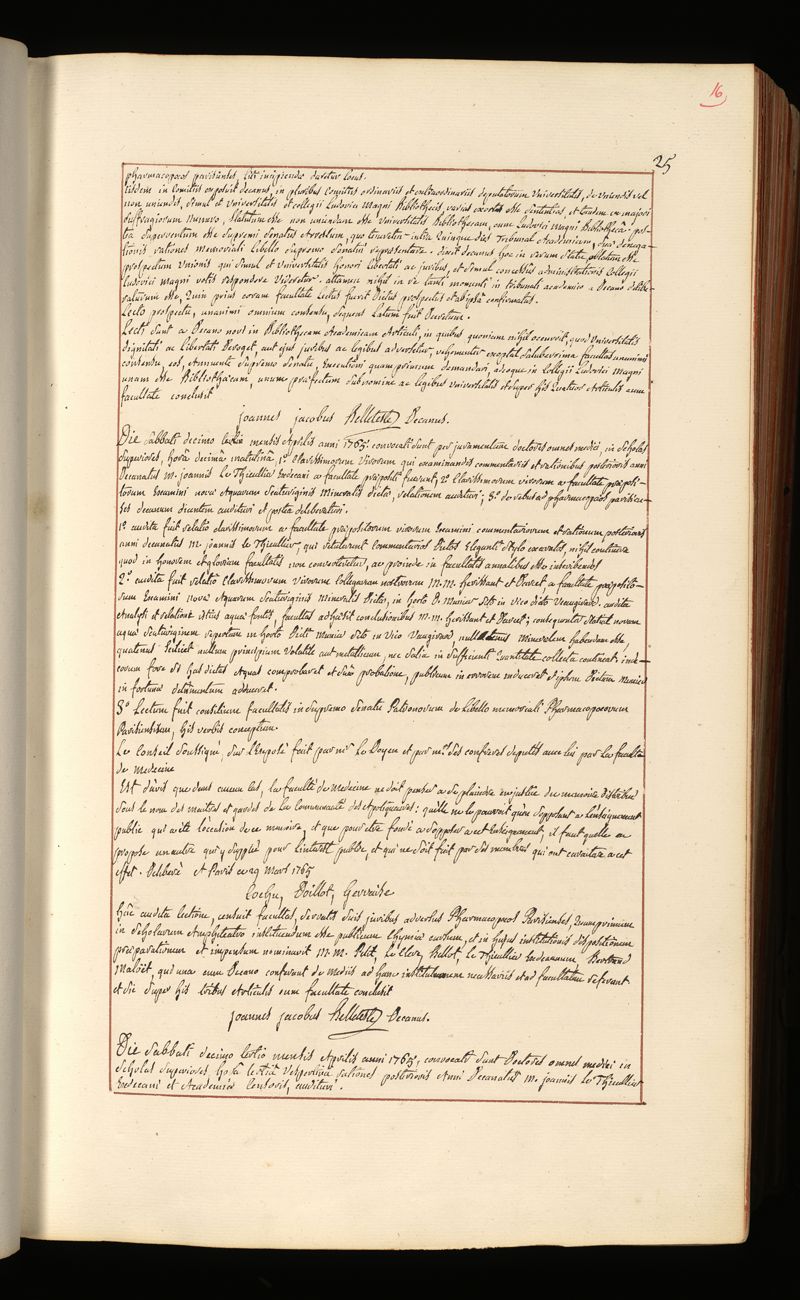 16
25
pharmacopoeos parisienses, liti incipiendae daretur locus.
iisdem in Comitiis exposuit decanus, in pluribus Comitiis ordinariis et extraordinariis deputatorum Universitatis, de uniendis vel
non uniendis, simul et Universitatis et Collegii Ludovici Magni Bibliothecis, varias esse sententias, et tandem ex majori
suffragiorum numero, statutum esse non uniendam esse Universitatis Bibliothecam, cum Ludovici Magni Bibliotheca: pos-
tea supervenisse esse supremi Senatus Arrestum, quo intra quinque dies Tribunal Academicum, suae denega-
tionis rationes memoriali libello supremo Senatui repraesentare. dixit decanus hoc in rerum statu, esse
prospectum Unionis qui simul et Universitatis honori libertati ac juribus, et simul administrationis Collegii
Ludovici Magni votis respondere videretur. attamen nihil in re tanti momenti in tribunali academico a Decano
esse, quin prius coram facultate lectus fuerit dictus prospectus et ab ipsa confirmatus.
Lecto prospectu, unanimi omnium consensu, sequens latum fuit Decretum.
Lecti sunt a Decano novi in Bibliothecam Academicam Articuli, in quibus quoniam nihil occurrit, quod Universitatis
dignitati ac libertati deroget, aut ejus juribus ac legibus adversetur, vehementer exoptat saluberrima facultas unanimi
consensu, eos, annuente supremo Senatu, executioni quam primum demandari, adeoque in Collegii Ludovici Magni
unam esse Bibliothecam, unum praefectum sub nomine ac legibus Universitatis et super his Articulis cum
facultate conclusit
joannes jacobus Belleteste Decanus.
Die Sabbati decimo tertio mensis Aprilis anni 1765. convocati sunt per juramentum doctores omnes medici, in Scholas
superiores, hora decima matutina, 1º. Clarissimorum Virorum qui examinandis commentariis et rationibus posterioris anni
Decanatus M. joannis Le Thieullier Exdecani a facultate praepositi fuerunt; 2º Clarissimorum virorum a facultate praeposi-
torum Examini novae Aquarum scaturiginis Mineralis dictae, relationem audituri; 3º. de rebus ad pharmacopoeos parisien-
ses decanum dicentem audituri et postea deliberaturi.
1º. audita fuit relatio clarissimorum a facultate praepositorum virorum Examini commentariorum et rationum posterioris
anni decanatus M. joannis le Thieullier, qui retulerunt Commentarios dictos Eleganti stylo exaratos, nihil continere
quod in honorem et gloriam facultatis non conscriberetur, ac proinde in facultatis annalibus esse inscribendos
2º. audita fuit relatio Clarissimorum virorum Collegarum nostrorum M.M. herissant et Darcet, a facultate praeposito-
rum Examini novae Aquarum scaturiginis Mineralis dictae, in horto D. Muriae sitae in vico dicto Vaugirard. audita
Analysi et relatione istius aquae fontis, facultas adhaesit conclusionibus M.M. herissant et Darcet; consequenter statuit novam
aquae scaturiginem repertam in horto Dicti Muriae sito in Vico Vaugirard, nullatenus Mineralem habendam esse
quatenus scilicet nullum principium volatile aut metallicum, nec salia in sufficienti quantitate collecta contineat; inde-
corum fore si has dictas Aquas comprobaret et sua probatione, publicum in errorem induceret et ipsum Dictum Muriae
in fortunae detrimentum adduceret.
3º. Lectum fuit consilium facultatis in supremo Senatu Patronorum de libello memoriali Pharmacopoeorum
Parisiensium, his verbis conceptum.
Le Conseil Soussigné, sur l'Exposé fait par mr. Le Doyen et par mrs. ses confreres deputés avec lui par la faculté
de Medecine
Est d'avis que dans aucun cas, la faculté de Medecine ne doit penser a se plaindre en justice du memoire distribué
sous le nom des maitres et gardes de la Communauté des Apoticaires: qu'elle ne le pourroit qu'en s'opposant a l'enseignement
public qui a été l'occasion de ce memoire, et que pour être fondé a s'opposer a cet Enseignement, il faut quelle en
propose un autre qui y supplée pour l'interest public, et qui ne soit fait par ses membres qui ont caractere a cet
effet. Deliberé et Paris ce 29 Mars 1765
Cochu, Doillot, Gervaise
Hac audita lectione, censuit facultas, servatis suis juribus adversus Pharmacopoeos Parisienses, quamprimum
in Scholarum Amphiteatro instituendum esse publicum Chymiae cursum, et in hujus institutionis dispositionem
praeparationem et impensum nominavit M.M. Petit, Le Clerc, Bellot, Le Thieullier Exdecanum, Bertrand
Maloët, qui una cum Decano conferant de mediis ad hanc institutionem necessariis et ad facultatem referant
et sic super his tribus Articulis cum facultate conclusit
joannes jacobus Belleteste Decanus.
Die Sabbati decimo tertio mensis Aprilis anni 1765, convocati sunt Doctores omnes medici in
Scholas superiores, hora tertia vespertina rationes posterioris Anni Decanatus M. joannis Le Thieullier
Exdecani et Academiae Censoris, audituri.